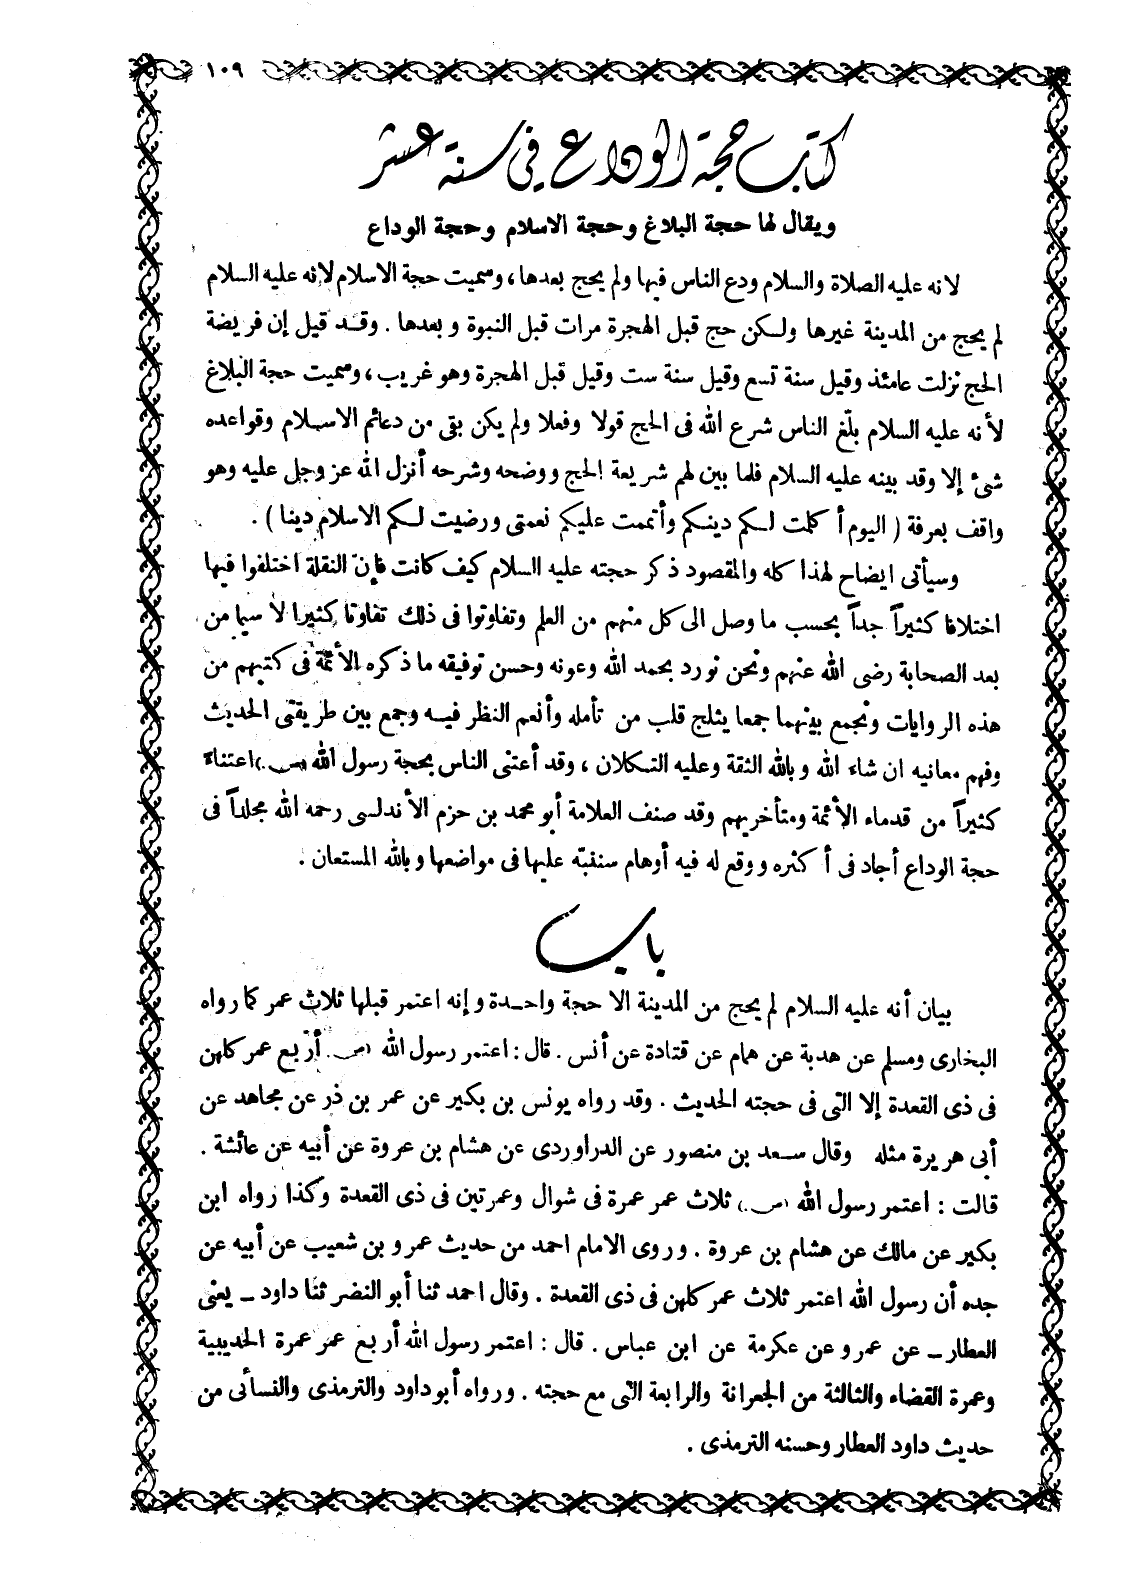 ١٠٩
كتاب حجة الوداع في سنة عشر
ويقال لها حجة البلاغ وحجة الاسلام وحجة الوداع
لانه عليه الصلاة والسلام ودع الناس فيها ولم يحج بعدها ، وسميت حجة الاسلام لانه عليه السلام
لم يحج من المدينة غيرها ولكن حج قبل الهجرة مرات قبل النبوة و بعدها . وقد قيل إن فريضة
الحج نزلت عامئذ وقيل سنة تسع وقيل سنة ست وقيل قبل الهجرة وهو غريب ، وسميت حجة البلاغ
لأنه عليه السلام بلّغ الناس شرع الله فى الحج قولا وفعلا ولم يكن بقى من دعائم الاسلام وقواعده
شئ إلا وقد بينه عليه السلام فلما بين لهم شريعة الحج ووضحه وشرحه أنزل الله عز وجل عليه وهو
واقف بعرفة ( اليوم أكملت لكم دينكم وأتممت عليكم نعمتى ورضيت لكم الاسلام دينا ) .
وسيأتى ايضاح لهذا كله والمقصود ذكر حجته عليه السلام كيف كانت فإن النقلة اختلفوا فيها
اختلافا كثيراً جداً بحسب ما وصل الى كل منهم من العلم وتفاوتوا فى ذلك تفاوتا كثيرا لا سيما من
بعد الصحابة رضى الله عنهم ونحن نورد بحمد الله وعونه وحسن توفيقه ما ذكره الأئمة فى كتبهم من
هذه الروايات ونجمع بينهما جمعا يثلج قلب من تأمله وأنعم النظر فيه وجمع بين طريقتى الحديث
وفهم معانيه ان شاء الله وبالله الثقة وعليه التكلان ، وقد أعتنى الناس بحجة رسول الله (ص.) اعتناء
كثيراً من قدماء الأئمة ومتأخريهم وقد صنف العلامة أبو محمد بن حزم الأندلسى رحمه الله مجلداً فى
حجة الوداع أجاد فى أكثره ووقع له فيه أوهام سننبّه عليها فى مواضعها وبالله المستعان .
باب
بيان أنه عليه السلام لم يحج من المدينة الا حجة واحدة وإنه اعتمر قبلها ثلاث عمر كما رواه
البخارى ومسلم عن هدبة عن همام عن قتادة عن أنس . قال : اعتمر رسول الله (ص.) أربع عمر كلهن
فى ذى القعدة إلا التى فى حجته الحديث . وقد رواه يونس بن بكير عن عمر بن ذر عن مجاهد عن
أبى هريرة مثله وقال سعد بن منصور عن الدراوردى عن هشام بن عروة عن أبيه عن عائشة .
قالت : اعتمر رسول الله (ص.) ثلاث عمر عمرة فى شوال وعمرتين فى ذى القعدة وكذا رواه ابن
بكير عن مالك عن هشام بن عروة . وروى الامام احمد من حديث عمرو بن شعيب عن أبيه عن
جده أن رسول الله اعتمر ثلاث عمر كلهن فى ذى القعدة . وقال احمد ثنا أبو النضر ثنا داود ــ يعنى
العطار ــ عن عمرو عن عكرمة عن ابن عباس . قال : اعتمر رسول الله أربع عمر عمرة الحديبية
وعمرة القضاء والثالثة من الجعرانة والرابعة التى مع حجته . ورواه أبو داود والترمذى والنسائى من
حديث داود العطار وحسنه الترمذى .